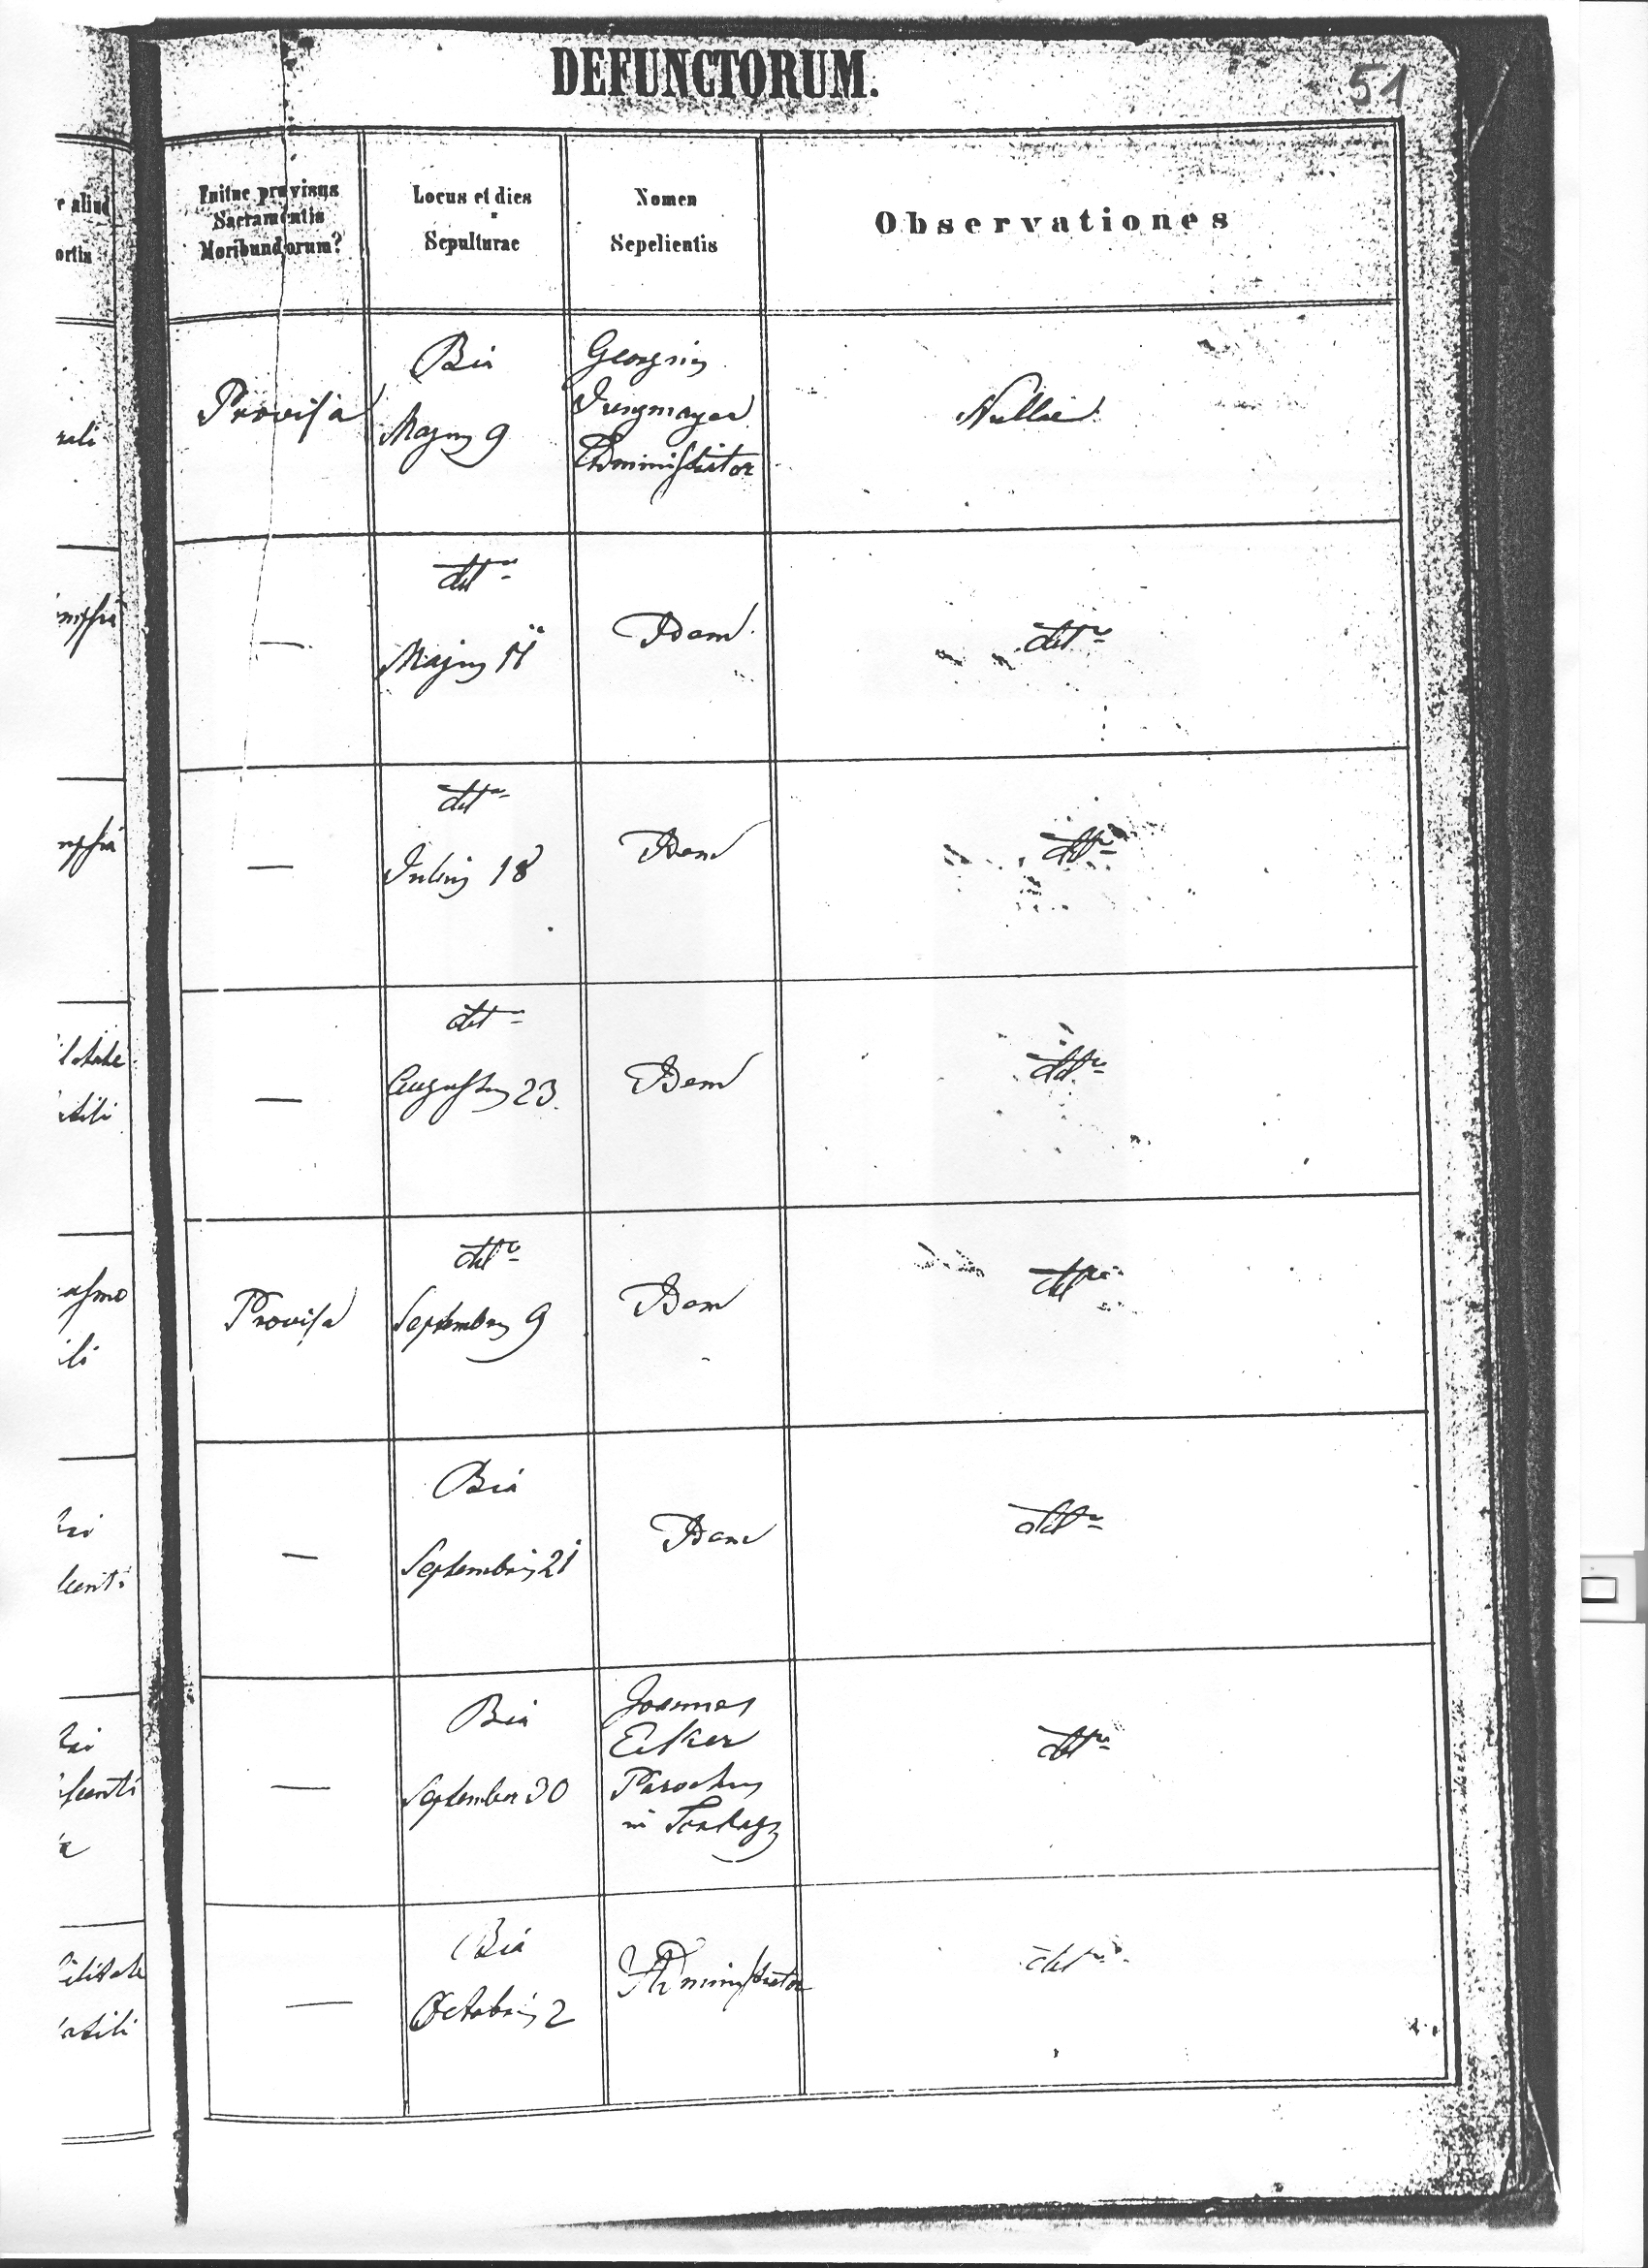 DEFUNCTORUM.
51
e aliud
ortis
Fuitne provisus
Sacramentis
Moribundorum?
Locus et dies
Sepulturae
Nomen
Sepelientis
Observationes
rali
Provisa
Bia
Majus 9
Georgius
Jungmayer
Administrator
Nullae
detto
Majus 11
Idem
detto
—
detto
Julius 18
Idem
detto
—
detto
Augustus 23.
Idem
detto
—
Provisa
detto
Septembris 9
Idem
detto
—
Bia
Septembris 21
Idem
detto
—
Bia
September 30
Joannes
Ecker
Parochus
in
detto
ilitate
—
Bia
Octobris 2
Administrator
detto